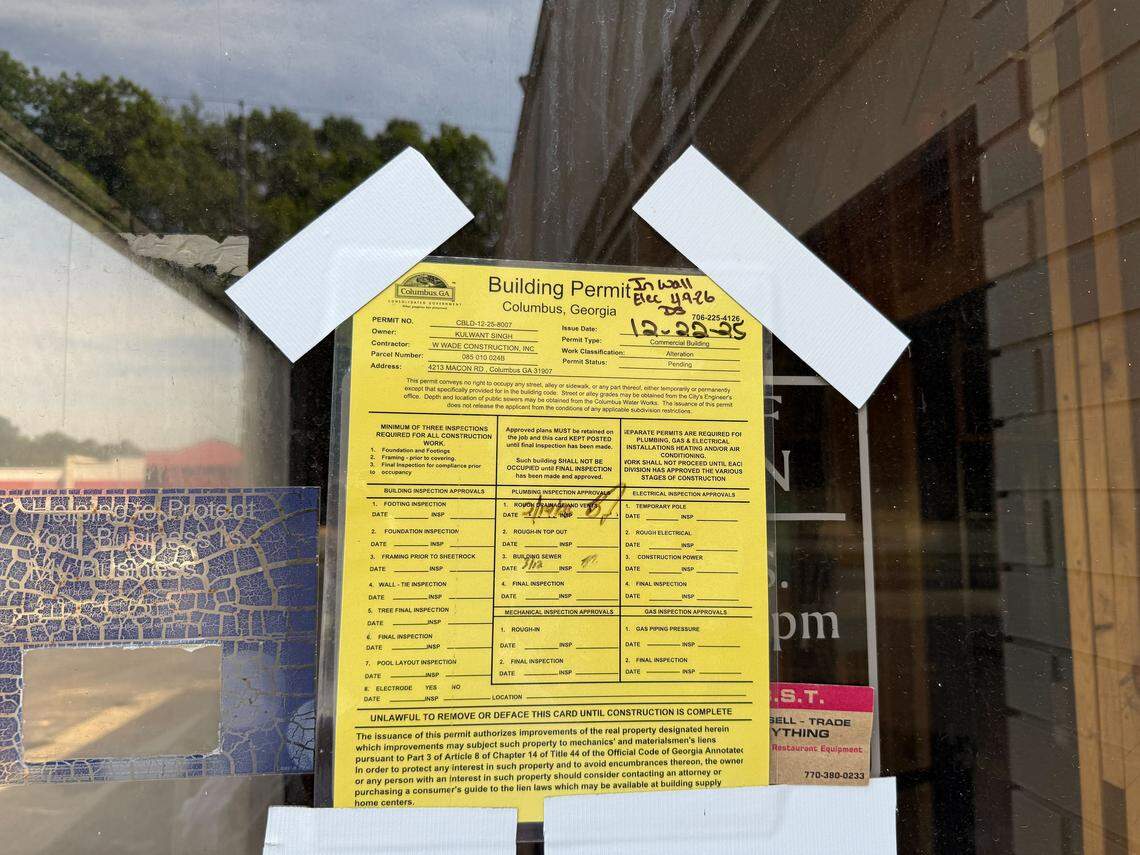 Columbus, GA
CONSOLIDATED GOVERNMENT
Building Permit
Columbus, Georgia
In Wall
Elec 4-9-26
DS
706-225-4126
12-22-25
PERMIT NO. CBLD-12-25-8007
Owner: KULWANT SINGH
Contractor: W WADE CONSTRUCTION, INC
Parcel Number: 085 010 024B
Address: 4213 MACON RD , Columbus GA 31907
Issue Date:
Permit Type: Commercial Building
Work Classification: Alteration
Permit Status: Pending
This permit conveys no right to occupy any street, alley or sidewalk, or any part thereof, either temporarily or permanently
except that specifically provided for in the building code. Street or alley grades may be obtained from the City's Engineer's
office. Depth and location of public sewers may be obtained from the Columbus Water Works. The issuance of this permit
does not release the applicant from the conditions of any applicable subdivision restrictions.
MINIMUM OF THREE INSPECTIONS
REQUIRED FOR ALL CONSTRUCTION
WORK.
1. Foundation and Footings
2. Framing - prior to covering.
3. Final Inspection for compliance prior
to occupancy
Approved plans MUST be retained on
the job and this card KEPT POSTED
until final inspection has been made.
Such building SHALL NOT BE
OCCUPIED until FINAL INSPECTION
has been made and approved.
SEPARATE PERMITS ARE REQUIRED FOR
PLUMBING, GAS & ELECTRICAL
INSTALLATIONS HEATING AND/OR AIR
CONDITIONING.
WORK SHALL NOT PROCEED UNTIL EACH
DIVISION HAS APPROVED THE VARIOUS
STAGES OF CONSTRUCTION
BUILDING INSPECTION APPROVALS
1. FOOTING INSPECTION
DATE INSP
2. FOUNDATION INSPECTION
DATE INSP
3. FRAMING PRIOR TO SHEETROCK
DATE INSP
4. WALL - TIE INSPECTION
DATE INSP
5. TREE FINAL INSPECTION
DATE INSP
6. FINAL INSPECTION
DATE INSP
7. POOL LAYOUT INSPECTION
DATE INSP
8. ELECTRODE YES NO
DATE INSP LOCATION
PLUMBING INSPECTION APPROVALS
1. ROUGH DRAINAGE AND VENTS
DATE INSP
2. ROUGH-IN TOP OUT
DATE INSP
3. BUILDING SEWER
DATE INSP
4. FINAL INSPECTION
DATE INSP
MECHANICAL INSPECTION APPROVALS
1. ROUGH-IN
DATE INSP
2. FINAL INSPECTION
DATE INSP
ELECTRICAL INSPECTION APPROVALS
1. TEMPORARY POLE
DATE INSP
2. ROUGH ELECTRICAL
DATE INSP
3. CONSTRUCTION POWER
DATE INSP
4. FINAL INSPECTION
DATE INSP
GAS INSPECTION APPROVALS
1. GAS PIPING PRESSURE
DATE INSP
2. FINAL INSPECTION
DATE INSP
UNLAWFUL TO REMOVE OR DEFACE THIS CARD UNTIL CONSTRUCTION IS COMPLETE
The issuance of this permit authorizes improvements of the real property designated herein
which improvements may subject such property to mechanics' and materialsmen's liens
pursuant to Part 3 of Article 8 of Chapter 14 of Title 44 of the Official Code of Georgia Annotated
In order to protect any interest in such property and to avoid encumbrances thereon, the owner
or any person with an interest in such property should consider contacting an attorney or
purchasing a consumer's guide to the lien laws which may be available at building supply
home centers.
Helping to Protect
Your Business Is
My Business
N
S.
pm
.S.T.
SELL - TRADE
YTHING
Restaurant Equipment
770-380-0233